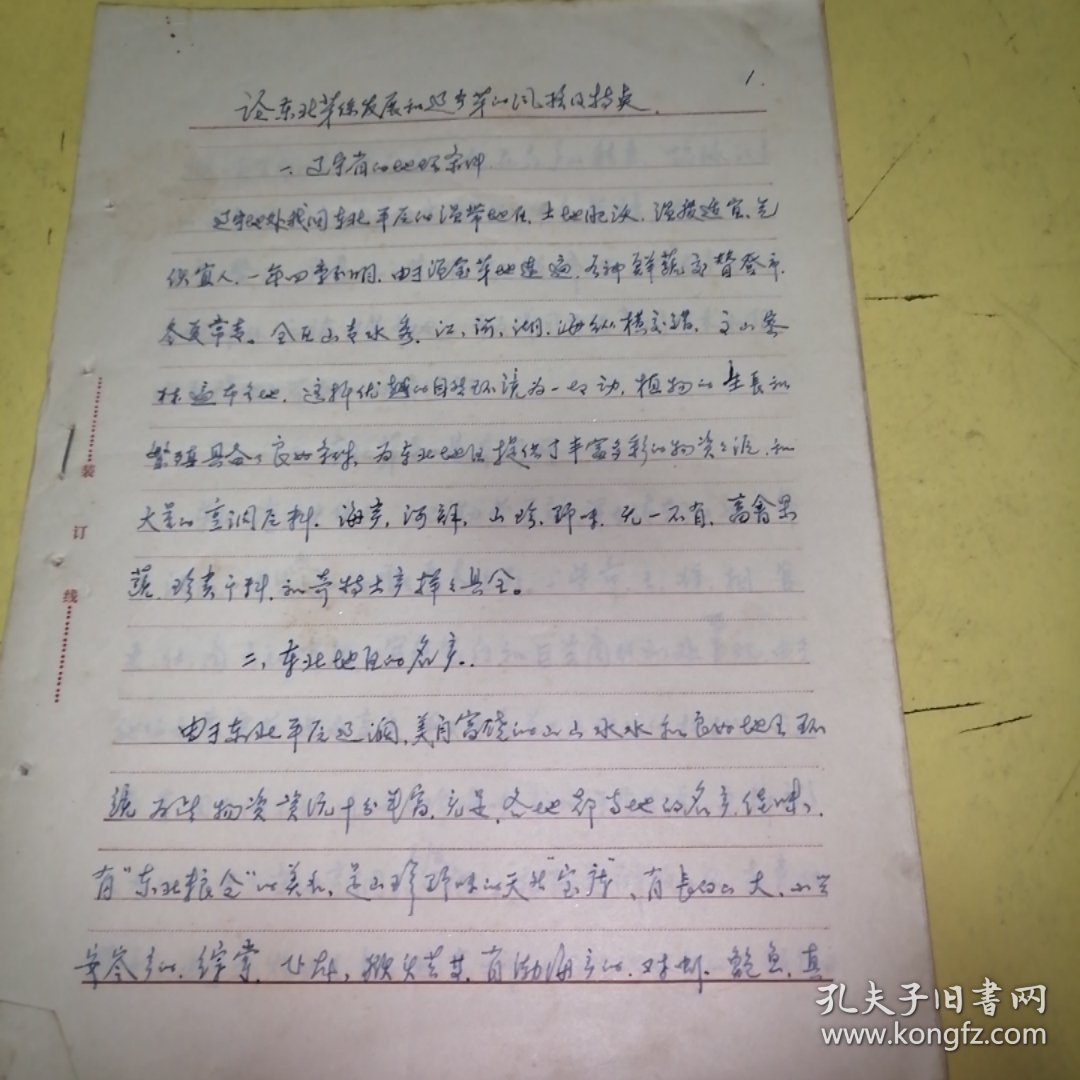 1.
论东北菜系发展和辽宁菜的风格及特点.
一、辽宁省的地理条件
辽宁地处我国东北平原的温带地区.土地肥沃.温度适宜.气
候宜人.一年四季分明.由于温室菜地连遍.各种鲜蔬交替登市.
冬夏常青。全区山青水秀.江、河、湖、海纵横交错.高山密
林遍布各地.这种优越的自然环境为一切动.植物的生长和
繁殖具备了良好条件.为东北地区提供了丰富多彩的物资之源.和
大量的烹调原料.海产.河鲜.山珍.野味.无一不有.禽果
蔬.珍贵干料.和奇特土产样样具全。
二、东北地区的名产.
由于东北平原辽阔.美丽富饶的山山水水和良好的地理环
境 物资资源十分丰富.充足.各地都有地的名产佳味.
有"东北粮仓"的美称.是山珍野味的天然"宝库".有长白山大.小兴
安岭产的.榛蘑.飞龙.猴头 有渤海产的.对虾.鲍鱼.真
装订线
孔夫子旧书网
www.kongfz.com